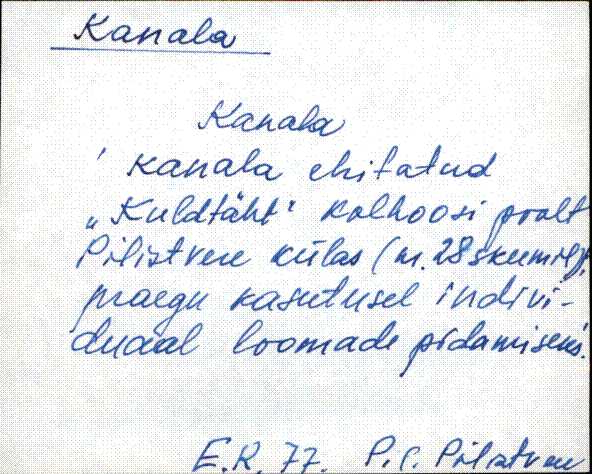 Kanala
Kanala
' kanala ehitatud
„Kuldtäht" kolhoosi poolt
Pilistvere külas (nr. 28 skeemil),
praegu kasutusel indivi-
duaal loomade pidamiseks.
E.K. 77. Pilistvere